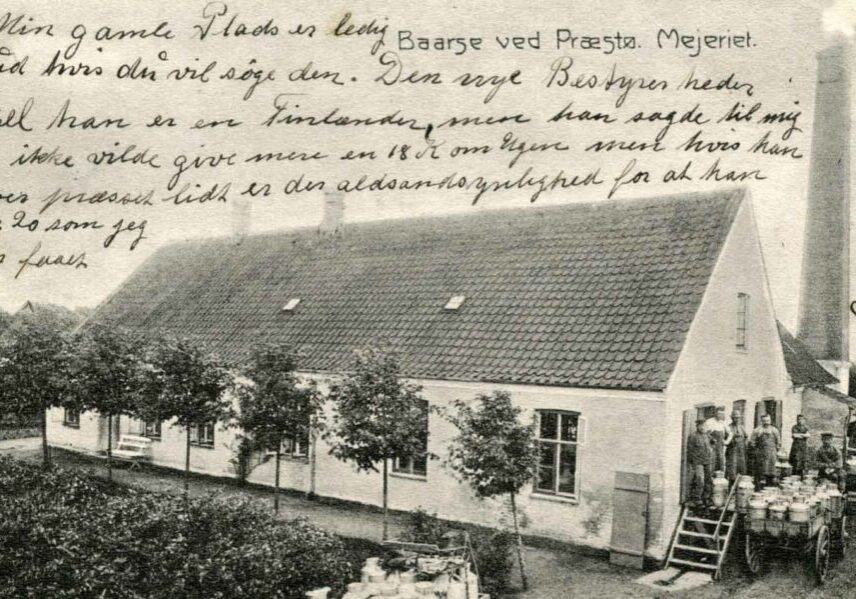 Min gamle Plads er ledig
Baarse ved Præstø. Mejeriet.
hvis du vil søge den. Den nye Bestyrer heder
han er en Finlænder, men han sagde til mig
ikke vilde give mere en 18 K om Ugen men hvis han
presset lidt er der aldsandsynlighed for at han
20 som jeg
faaet